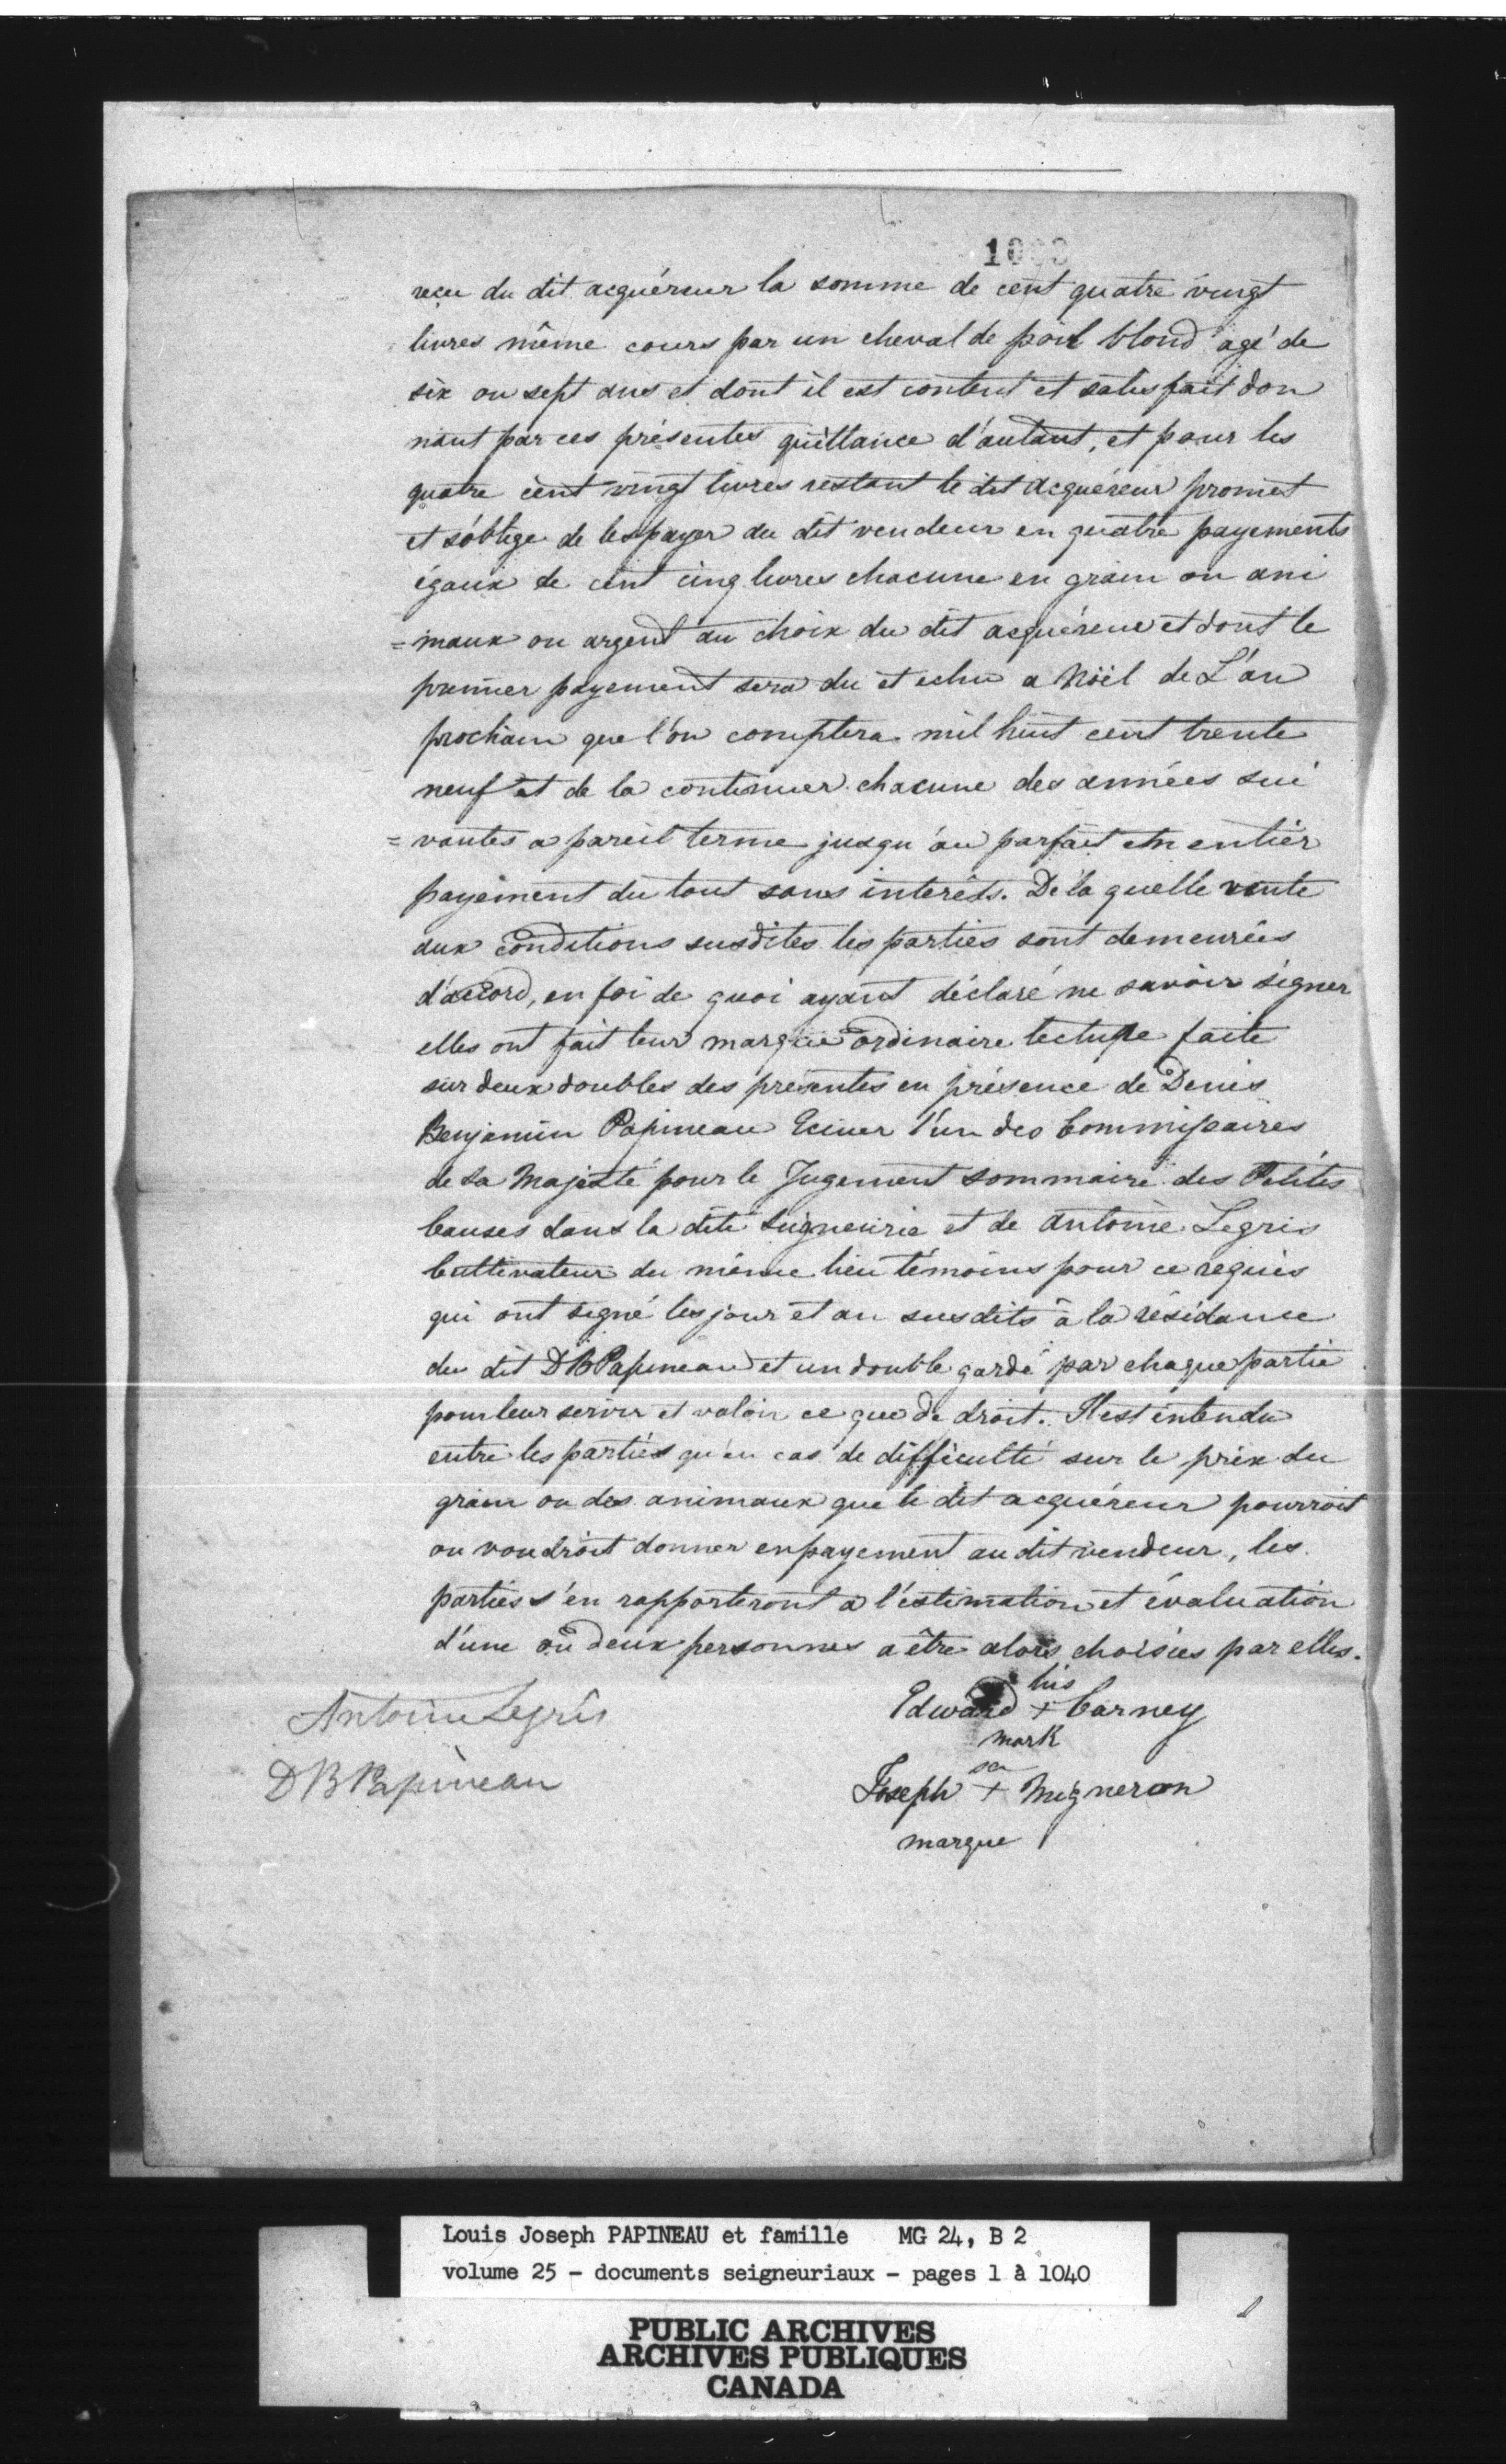 reçu du dit acquéreur la somme de cent quatre vingt
livres même cours par un cheval de poil blond agé de
six ou sept ans et dont il est content et satisfait don
nant par ces présentes quittance d'autant, et pour les
quatre cent vingt livres restant le dit acquéreur promet
et s'oblige de les payer au dit vendeur en quatre payements
égaux de cent cinq livres chacune en grain ou ani
=maux ou argent au choix du dit acquéreur et dont le
premier payement sera du et echu a Noël de L'an
prochain que l'on comptera mil huit cent trente
neuf et de la continuer chacune des années sui
=vantes a pareil terme jusqu'au parfait et entier
payement du tout sans interêts. De la quelle vente
aux conditions susdites les parties sont demeurées
d'accord, en foi de quoi ayant déclaré ne savoir signer
elles ont fait leur marque ordinaire lecture faite
sur deux doubles des presentes en présence de Denis
Benjamin Papineau Ecuier l'un des Commissaires
de Sa Majesté pour le Jugement sommaire des Petites
Causes dans la dite Seigneurie et de Antoine Legris
Cultivateur du même lieu témoins pour ce requis
qui ont signé les jour et an susdits à la résidance
du dit DBPapineau et un double gardé par chaque partie
pour leur servir et valoir ce que de droit. Il est entendu
entre les parties qu'en cas de difficulté sur le prix du
grain ou des animaux que le dit acquéreur pourroit
ou voudroit donner en payement au dit vendeur, les
parties s'en rapporteront a l'estimation et évaluation
d'une ou deux personnes a être alors choisies par elles.
his
Antoine Legris Edward + Carney
mark
sa
DBPapineau Joseph + Migneron
marque
Louis Joseph PAPINEAU et famille MG 24, B 2
volume 25 - documents seigneuriaux - pages 1 à 1040
PUBLIC ARCHIVES
ARCHIVES PUBLIQUES
CANADA